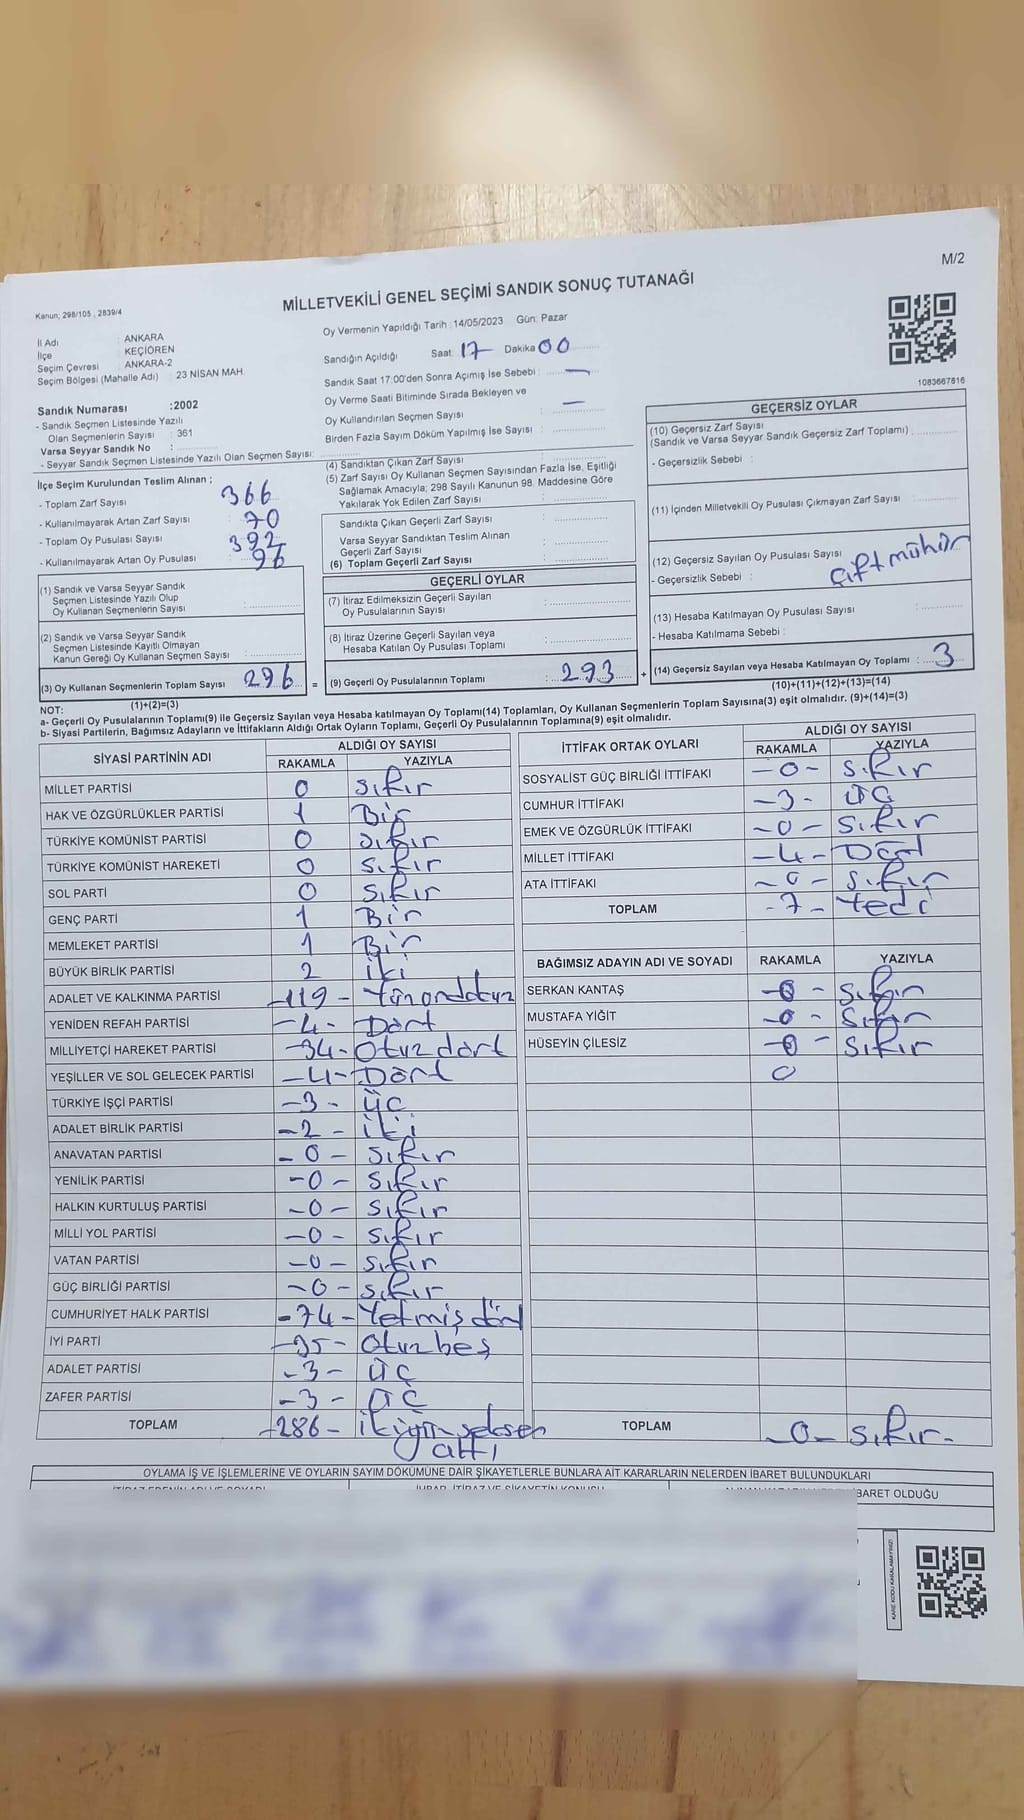 M/2
MİLLETVEKİLİ GENEL SEÇİMİ SANDIK SONUÇ TUTANAĞI
Kanun; 298/105 , 2839/4
İl Adı : ANKARA
İlçe : KEÇİÖREN
Seçim Çevresi : ANKARA-2
Seçim Bölgesi (Mahalle Adı) : 23 NİSAN MAH.
Oy Vermenin Yapıldığı Tarih : 14/05/2023 Gün: Pazar
Sandığın Açıldığı Saat: 17 Dakika 00
Sandık Saat 17:00'den Sonra Açımış İse Sebebi : —
Oy Verme Saati Bitiminde Sırada Bekleyen ve
Oy Kullandırılan Seçmen Sayısı : —
Birden Fazla Sayım Döküm Yapılmış İse Sayısı :
1083667816
Sandık Numarası :2002
- Sandık Seçmen Listesinde Yazılı
Olan Seçmenlerin Sayısı : 361
Varsa Seyyar Sandık No :
- Seyyar Sandık Seçmen Listesinde Yazılı Olan Seçmen Sayısı:
İlçe Seçim Kurulundan Teslim Alınan ;
- Toplam Zarf Sayısı : 366
- Kullanılmayarak Artan Zarf Sayısı : 70
- Toplam Oy Pusulası Sayısı : 392
- Kullanılmayarak Artan Oy Pusulası : 96
(1) Sandık ve Varsa Seyyar Sandık
Seçmen Listesinde Yazılı Olup
Oy Kullanan Seçmenlerin Sayısı :
(2) Sandık ve Varsa Seyyar Sandık
Seçmen Listesinde Kayıtlı Olmayan
Kanun Gereği Oy Kullanan Seçmen Sayısı :
(3) Oy Kullanan Seçmenlerin Toplam Sayısı : 296 =
(1)+(2)=(3)
(4) Sandıktan Çıkan Zarf Sayısı :
(5) Zarf Sayısı Oy Kullanan Seçmen Sayısından Fazla İse, Eşitliği
Sağlamak Amacıyla; 298 Sayılı Kanunun 98. Maddesine Göre
Yakılarak Yok Edilen Zarf Sayısı :
Sandıkta Çıkan Geçerli Zarf Sayısı :
Varsa Seyyar Sandıktan Teslim Alınan
Geçerli Zarf Sayısı :
(6) Toplam Geçerli Zarf Sayısı :
GEÇERLİ OYLAR
(7) İtiraz Edilmeksizin Geçerli Sayılan
Oy Pusulalarının Sayısı :
(8) İtiraz Üzerine Geçerli Sayılan veya
Hesaba Katılan Oy Pusulası Toplamı :
(9) Geçerli Oy Pusulalarının Toplamı : 293 +
GEÇERSİZ OYLAR
(10) Geçersiz Zarf Sayısı
(Sandık ve Varsa Seyyar Sandık Geçersiz Zarf Toplamı) :
- Geçersizlik Sebebi :
(11) İçinden Milletvekili Oy Pusulası Çıkmayan Zarf Sayısı :
(12) Geçersiz Sayılan Oy Pusulası Sayısı :
- Geçersizlik Sebebi : Çift mühür
(13) Hesaba Katılmayan Oy Pusulası Sayısı :
- Hesaba Katılmama Sebebi :
(14) Geçersiz Sayılan veya Hesaba Katılmayan Oy Toplamı : 3
(10)+(11)+(12)+(13)=(14)
NOT:
a- Geçerli Oy Pusulalarının Toplamı(9) ile Geçersiz Sayılan veya Hesaba katılmayan Oy Toplamı(14) Toplamları, Oy Kullanan Seçmenlerin Toplam Sayısına(3) eşit olmalıdır. (9)+(14)=(3)
b- Siyasi Partilerin, Bağımsız Adayların ve İttifakların Aldığı Ortak Oyların Toplamı, Geçerli Oy Pusulalarının Toplamına(9) eşit olmalıdır.
SİYASİ PARTİNİN ADI ALDIĞI OY SAYISI
RAKAMLA YAZIYLA
MİLLET PARTİSİ 0 sıfır
HAK VE ÖZGÜRLÜKLER PARTİSİ 1 Bir
TÜRKİYE KOMÜNİST PARTİSİ 0 sıfır
TÜRKİYE KOMÜNİST HAREKETİ 0 sıfır
SOL PARTİ 0 sıfır
GENÇ PARTİ 1 Bir
MEMLEKET PARTİSİ 1 Bir
BÜYÜK BİRLİK PARTİSİ 2 iki
ADALET VE KALKINMA PARTİSİ -119-
YENİDEN REFAH PARTİSİ -4- Dört
MİLLİYETÇİ HAREKET PARTİSİ -34- Otuzdört
YEŞİLLER VE SOL GELECEK PARTİSİ -4- Dört
TÜRKİYE İŞÇİ PARTİSİ -3- üç
ADALET BİRLİK PARTİSİ -2- iki
ANAVATAN PARTİSİ -0- sıfır
YENİLİK PARTİSİ -0- sıfır
HALKIN KURTULUŞ PARTİSİ -0- sıfır
MİLLİ YOL PARTİSİ -0- sıfır
VATAN PARTİSİ -0- sıfır
GÜÇ BİRLİĞİ PARTİSİ -0- sıfır
CUMHURİYET HALK PARTİSİ -74- Yetmişdört
İYİ PARTİ -35- Otuzbeş
ADALET PARTİSİ -3- üç
ZAFER PARTİSİ -3- üç
TOPLAM -286- ikiyüzseksen
altı
İTTİFAK ORTAK OYLARI ALDIĞI OY SAYISI
RAKAMLA YAZIYLA
SOSYALİST GÜÇ BİRLİĞİ İTTİFAKI -0- sıfır
CUMHUR İTTİFAKI -3- üç
EMEK VE ÖZGÜRLÜK İTTİFAKI -0- sıfır
MİLLET İTTİFAKI -4- Dört
ATA İTTİFAKI -0- sıfır
TOPLAM -7- Yedi
BAĞIMSIZ ADAYIN ADI VE SOYADI RAKAMLA YAZIYLA
SERKAN KANTAŞ -0- sıfır
MUSTAFA YİĞİT -0- sıfır
HÜSEYİN ÇİLESİZ -0- sıfır
0
TOPLAM -0- sıfır-
OYLAMA İŞ VE İŞLEMLERİNE VE OYLARIN SAYIM DÖKÜMÜNE DAİR ŞİKAYETLERLE BUNLARA AİT KARARLARIN NELERDEN İBARET BULUNDUKLARI
BARET OLDUĞU
KARE KODU KARALAMAYINIZ!